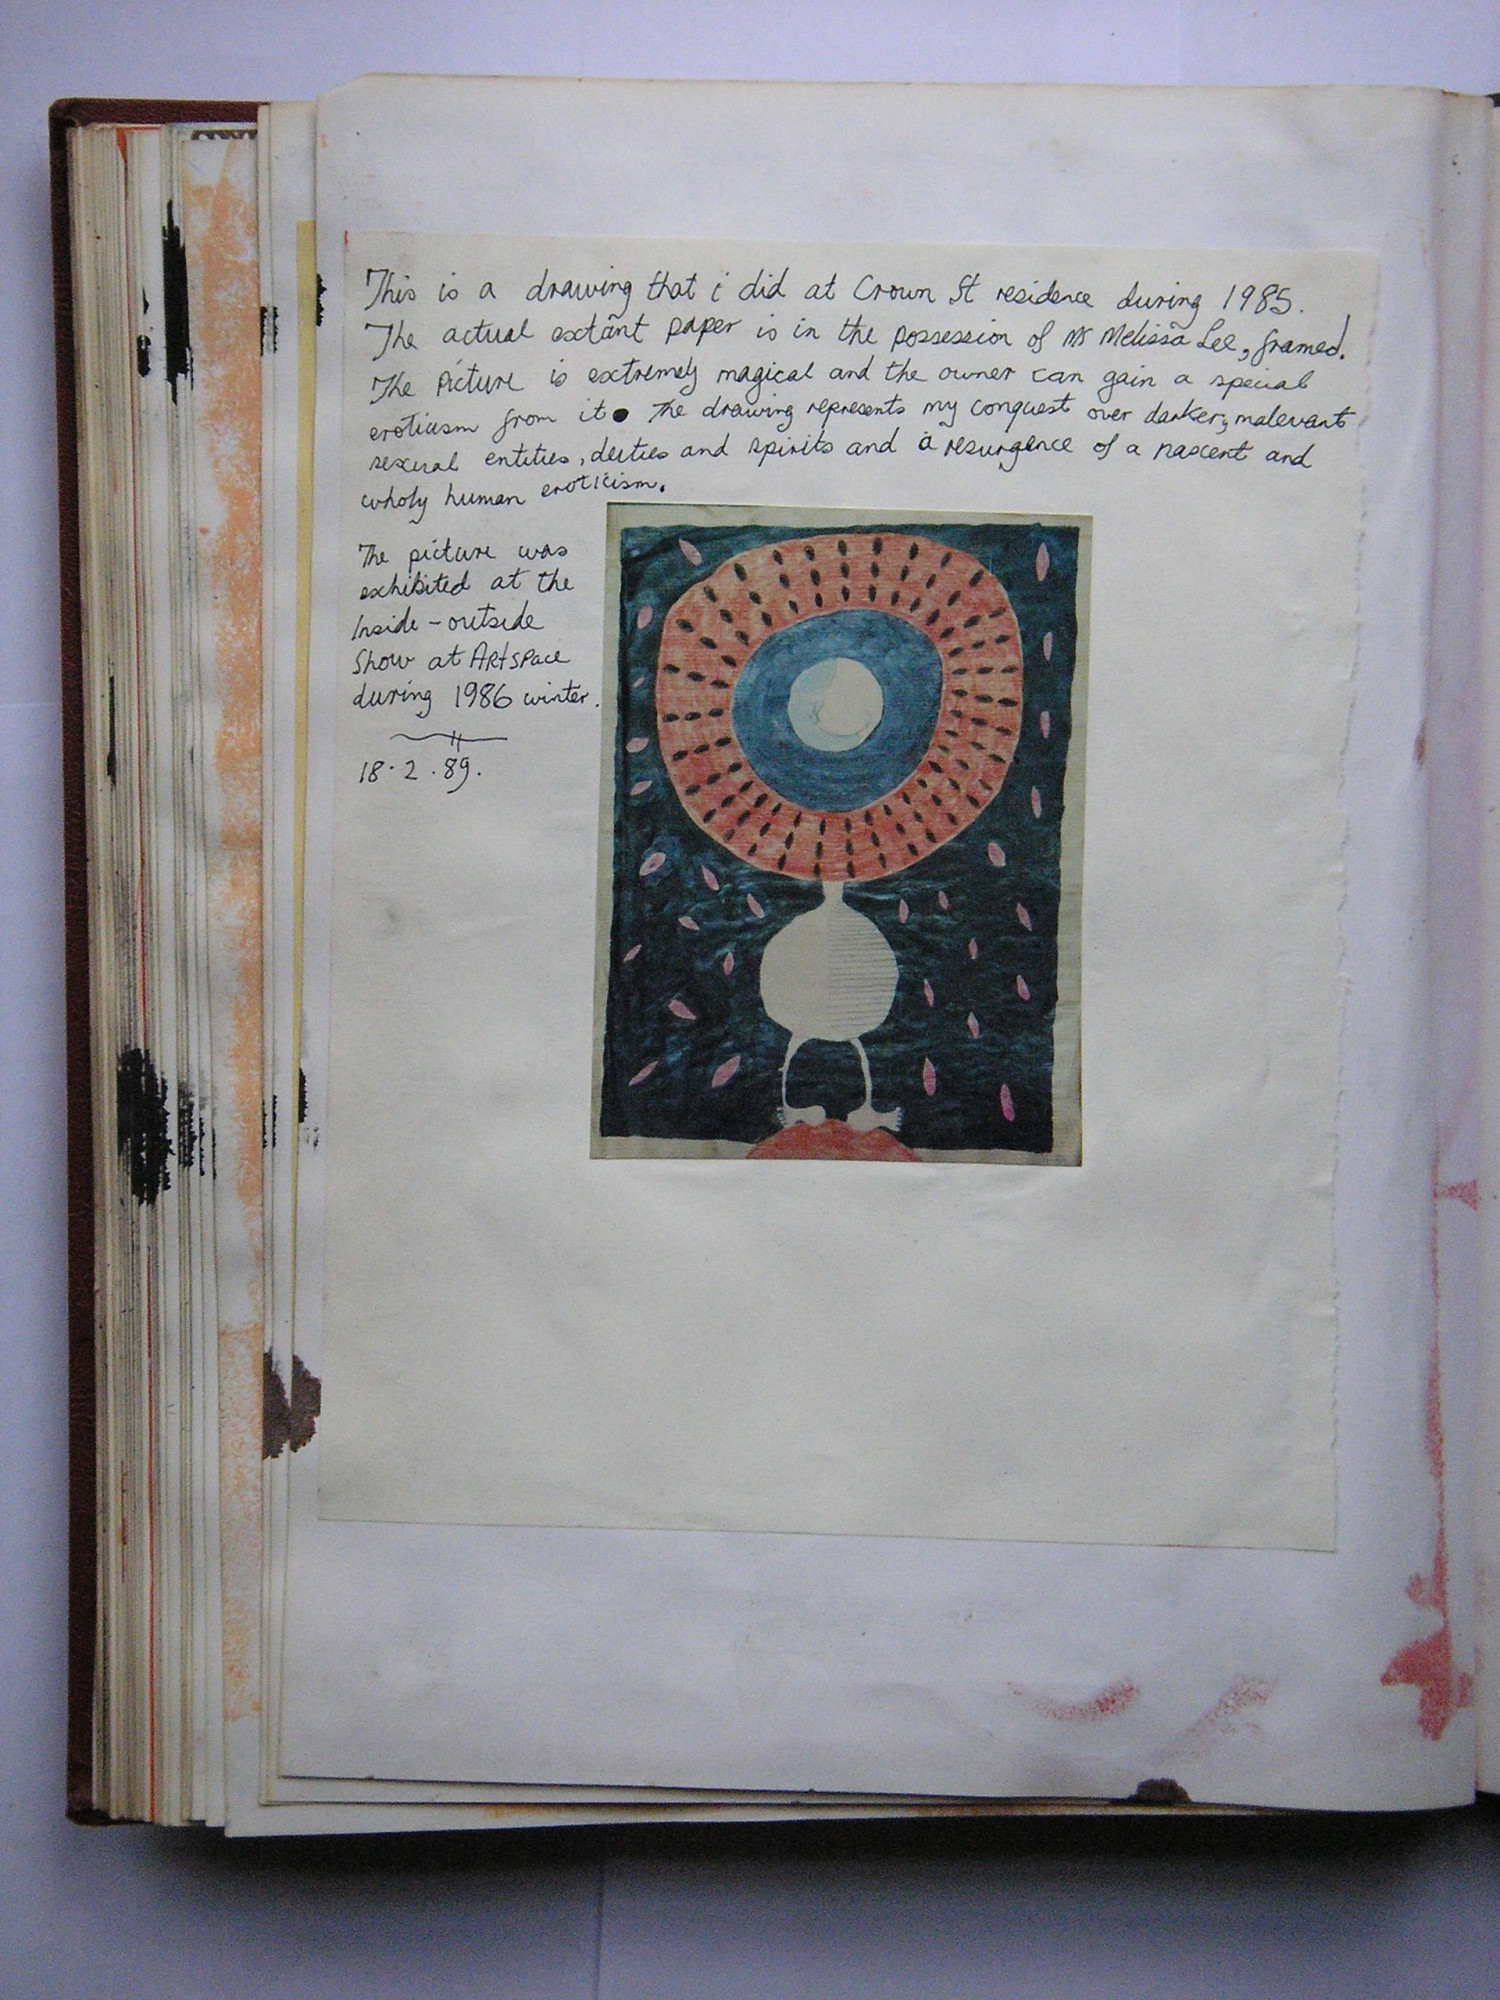 This is a drawing that i did at Crown St residence during 1985.
The actual extant paper is in the possession of Ms Melissa Lee, framed.
The Picture is extremely magical and the owner can gain a special
eroticism from it. The drawing represents my conquest over darker, malevant
sexual entities, deities and spirits and a resurgence of a nascent and
wholy human eroticism.
The picture was
exhibited at the
Inside-outside
Show at Artspace
during 1986 winter.
18.2.89.